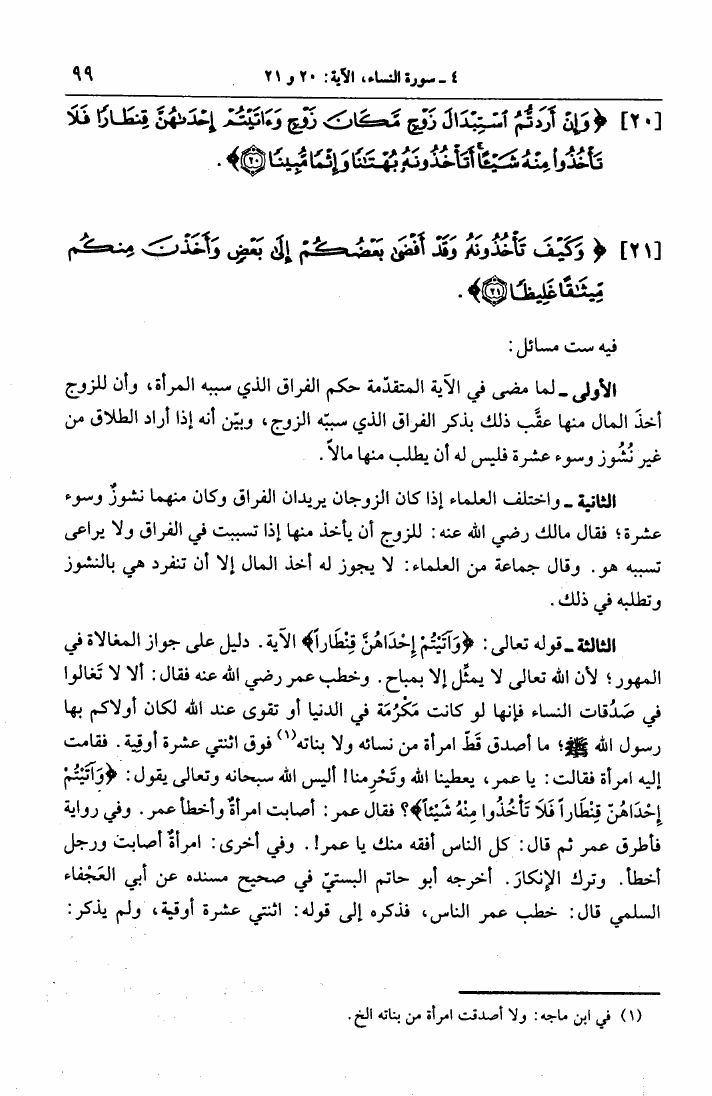 ٤ - سورة النساء، الآية: ٢٠ و ٢١
٩٩
[٢٠] ﴿وَإِنْ أَرَدتُّمُ ٱسْتِبْدَالَ زَوْجٍ مَّكَانَ زَوْجٍ وَءَاتَيْتُمْ إِحْدَىٰهُنَّ قِنطَارًا فَلَا
تَأْخُذُوا۟ مِنْهُ شَيْـًٔا أَتَأْخُذُونَهُۥ بُهْتَٰنًا وَإِثْمًا مُّبِينًا ٢٠﴾.
[٢١] ﴿وَكَيْفَ تَأْخُذُونَهُۥ وَقَدْ أَفْضَىٰ بَعْضُكُمْ إِلَىٰ بَعْضٍ وَأَخَذْنَ مِنكُم
مِّيثَٰقًا غَلِيظًا ٢١﴾.
فيه ست مسائل:
الأولى - لما مضى في الآية المتقدّمة حكم الفراق الذي سببه المرأة، وأن للزوج
أخذَ المال منها عقَّب ذلك بذكر الفراق الذي سببّه الزوج، وبيّن أنه إذا أراد الطلاق من
غير نُشُوز وسوء عشرة فليس له أن يطلب منها مالاً.
الثانية - واختلف العلماء إذا كان الزوجان يريدان الفراق وكان منهما نشوزٌ وسوء
عشرة؛ فقال مالك رضي الله عنه: للزوج أن يأخذ منها إذا تسببت في الفراق ولا يراعى
تسببه هو. وقال جماعة من العلماء: لا يجوز له أخذ المال إلا أن تنفرد هي بالنشوز
وتطلبه في ذلك.
الثالثة - قوله تعالى: ﴿وَآتَيْتُمْ إِحْدَاهُنَّ قِنْطَاراً﴾ الآية. دليل على جواز المغالاة في
المهور؛ لأن الله تعالى لا يمثِّل إلا بمباح. وخطب عمر رضي الله عنه فقال: ألا لا تَغالوا
في صَدُقات النساء فإنها لو كانت مَكْرُمَة في الدنيا أو تقوى عند الله لكان أولاكم بها
رسول الله ﷺ؛ ما أصدق قَطّ امرأة من نسائه ولا بناته(١) فوق اثنتي عشرة أوقِية. فقامت
إليه امرأة فقالت: يا عمر، يعطينا الله وتَحْرِمنا! أليس الله سبحانه وتعالى يقول: ﴿وَآتَيْتُمْ
إِحْدَاهُنّ قِنْطَاراً فَلاَ تَأْخُذُوا مِنْهُ شَيْئاً﴾؟ فقال عمر: أصابت امرأةٌ وأخطأ عمر. وفي رواية
فأطرق عمر ثم قال: كل الناس أفقه منك يا عمر!. وفي أخرى: امرأةٌ أصابت ورجل
أخطأ. وترك الإنكارَ. أخرجه أبو حاتم البستيّ في صحيح مسنده عن أبي العَجْفاء
السلمي قال: خطب عمر الناس، فذكره إلى قوله: اثنتي عشرة أوقية، ولم يذكر:
(١) في ابن ماجه: ولا أصدقت امرأة من بناته الخ.